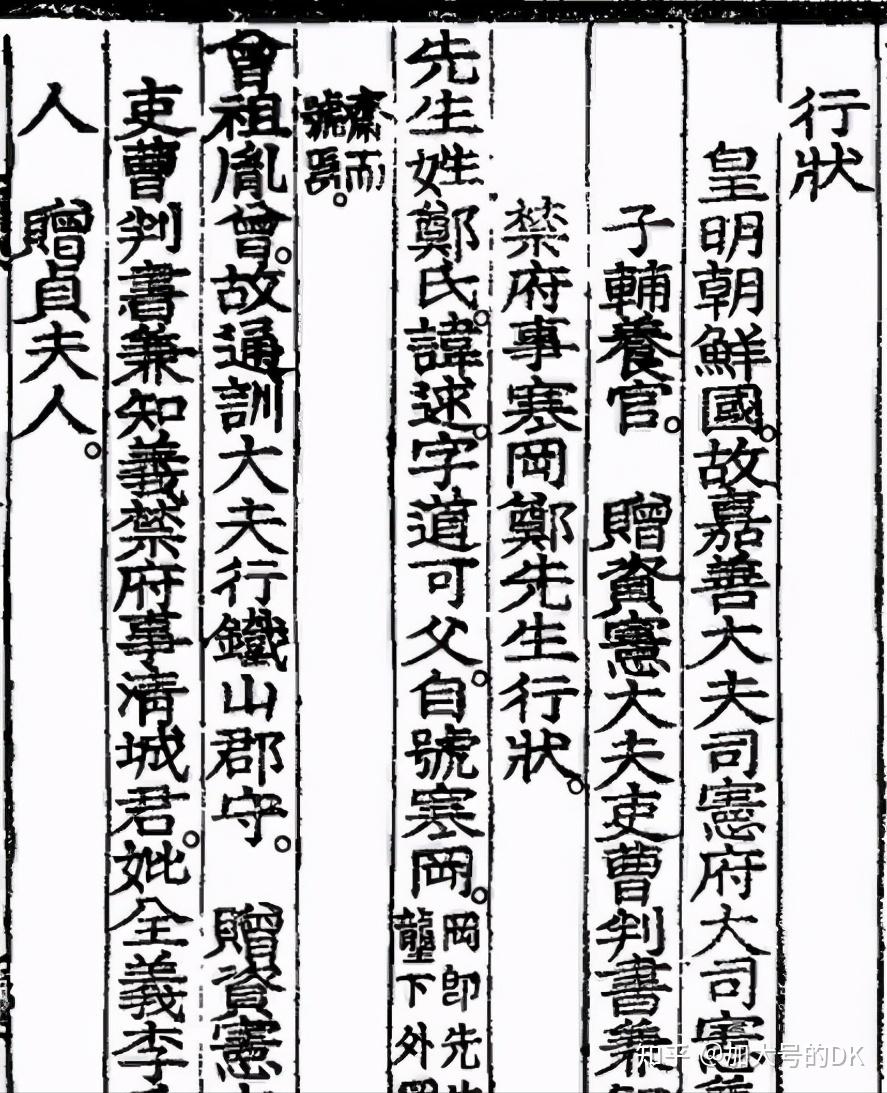 行狀
皇明朝鮮國。故嘉善大夫司憲府大司憲兼
子輔養官。 贈資憲大夫吏曹判書兼
禁府事寒岡鄭先生行狀。
先生姓鄭氏。諱逑。字道可父。自號寒岡。
岡卽先
壟下外
齋而
號焉。
曾祖胤曾。故通訓大夫行鐵山郡守。 贈資憲
吏曹判書兼知義禁府事淸城君。妣全義李
人 贈貞夫人。
知乎 @加大号的DK